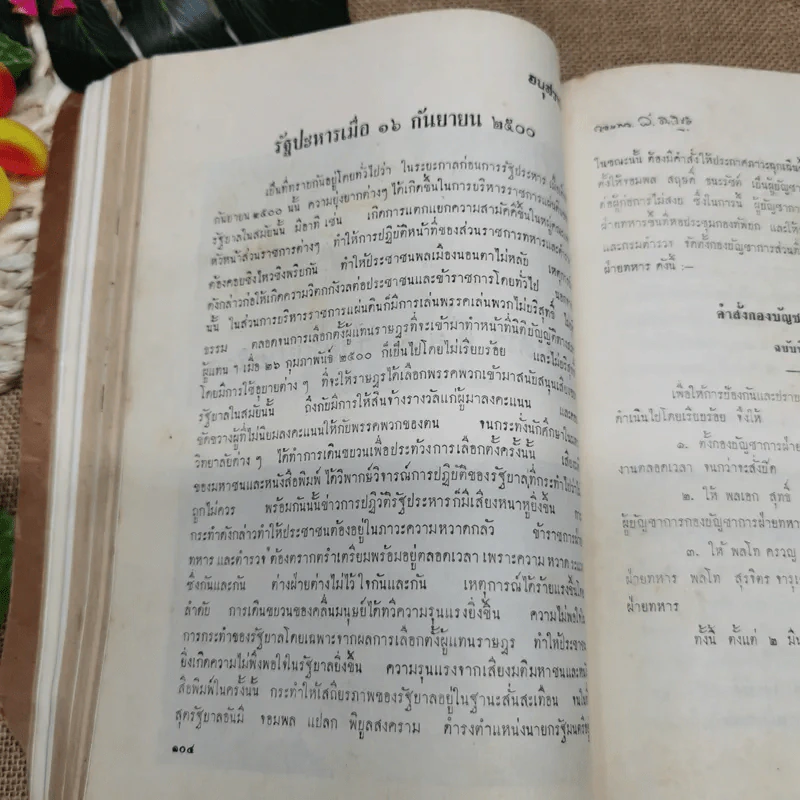 อนุสร
รัฐประหารเมื่อ ๑๖ กันยายน ๒๕๐๐
เป็นที่ทราบกันอยู่โดยทั่วไปว่า ในระยะกาลก่อนการรัฐประหาร เมื่อ
กันยายน ๒๕๐๐ นั้น ความยุ่งยากต่างๆ ได้เกิดขึ้นในการบริหารราชการแผ่นดิน
รัฐบาลในสมัยนั้น มีอาทิ เช่น เกิดการแตกแยกความสามัคคีขึ้นในหมู่
หัวหน้าส่วนราชการต่างๆ ทำให้การปฏิบัติหน้าที่ของส่วนราชการทหารและตำรวจ
ต้องคอยชิงไหวชิงพริบกัน ทำให้ประชาชนพลเมืองนอนตาไม่หลับ เหตุการณ์
ดังกล่าวก่อให้เกิดความวิตกกังวลต่อประชาชนและข้าราชการโดยทั่วไป นอกจาก
นั้น ในส่วนการบริหารราชการแผ่นดินก็มีการเล่นพรรคเล่นพวกไม่บริสุทธิ์
ธรรม ตลอดจนการเลือกตั้งผู้แทนราษฎรที่จะเข้ามาทำหน้าที่นิติบัญญัติ
ผู้แทน ฯ เมื่อ ๒๖ กุมภาพันธ์ ๒๕๐๐ ก็เป็นไปโดยไม่เรียบร้อย และไม่บริสุทธิ์
โดยมีการใช้อุบายต่าง ๆ ที่จะให้ราษฎรได้เลือกพรรคพวกเข้ามาสนับสนุน
รัฐบาลในสมัยนั้น ถึงกับมีการให้สินจ้างรางวัลแก่ผู้มาลงคะแนน และ
ขัดขวางผู้ที่ไม่นิยมลงคะแนนให้กับพรรคพวกของตน จนกระทั่งนักศึกษาใน
วิทยาลัยต่าง ๆ ได้ทำการเดินขบวนเพื่อประท้วงการเลือกตั้งครั้งนั้น เสียง
ของมหาชนและหนังสือพิมพ์ ได้วิพากษ์วิจารณ์การปฏิบัติของรัฐบาลที่กระทำไป
ถูกไม่ควร พร้อมกันนั้นข่าวการปฏิวัติรัฐประหารก็มีเสียงหนาหูยิ่งขึ้น การ
กระทำดังกล่าวทำให้ประชาชนต้องอยู่ในภาวะความหวาดกลัว ข้าราชการฝ่าย
ทหาร และตำรวจ ต้องตรากตรำเตรียมพร้อมอยู่ตลอดเวลา เพราะความ หวาดระแวง
ซึ่งกันและกัน ต่างฝ่ายต่างไม่ไว้ใจกันและกัน เหตุการณ์ได้ร้ายแรงขึ้นโดย
ลำดับ การเดินขบวนของคลื่นมนุษย์ได้ทวีความรุนแรงยิ่งขึ้น ความไม่พอใจใน
การกระทำของรัฐบาลโดยเฉพาะจากผลการเลือกตั้งผู้แทนราษฎร ทำให้ประชาชน
ยิ่งเกิดความไม่พึงพอใจในรัฐบาลยิ่งขึ้น ความรุนแรงจากเสียงมติมหาชนและหนัง
สือพิมพ์ในครั้งนั้น กระทำให้เสถียรภาพของรัฐบาลอยู่ในฐานะสั่นสะเทือน จนในที่
สุดรัฐบาลอันมี จอมพล แปลก พิบูลสงคราม ดำรงตำแหน่งนายกรัฐมนตรี
๑๐๔
ในขณะนั้น ต้องมีคำสั่งให้ประกาศภาวะฉุกเฉิน
ตั้งให้จอมพล สฤษดิ์ ธนะรัชต์ เป็นผู้บัญชา
ต่อผู้ก่อการไม่สงบ ซึ่งในการนี้ ผู้บัญชา
ฝ่ายทหารขึ้นที่หอประชุมกองทัพบก และให้
และกรมตำรวจ จัดตั้งกองบัญชาการส่วนที่
ฝ่ายทหาร ดังนี้ :—
คำสั่งกองบัญช
ฉบับที่
เพื่อให้การป้องกันและปราบ
ดำเนินไปโดยเรียบร้อย จึงให้
๑. ตั้งกองบัญชาการฝ่าย
งานตลอดเวลา จนกว่าจะสั่งปิด
๒. ให้ พลเอก สุทธิ์
ผู้บัญชาการกองบัญชาการฝ่ายทหาร
๓. ให้ พลโท
ฝ่ายทหาร พลโท สุรจิตร จารุเ
ฝ่ายทหาร
ทั้งนี้ ตั้งแต่ ๒ มีน